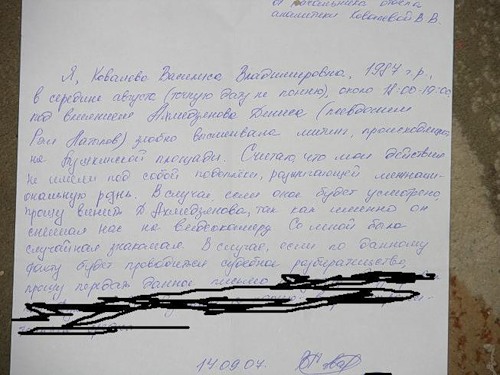 от начальника отдела
аналитики Ковалевой В.В.
Я, Ковалева Василиса Владимировна, 1987 г.р,
в середине августа (точную дату не помню), около 18:00-19:00
под влиянием Ахмедзянова Дениса (псевдоним
Рэм Латыпов) злобно высмеивала митинг, происходящий
на Пушкинской площади. Считаю, что мои действия
не имели под собой подоплёки, разжигающей межнаци-
ональную рознь. В случае если оное будет усмотрено,
прошу винить Д. Ахмедзянова, так как именно он
снимал нас на видеокамеру. Со мной была
случайная знакомая. В случае, если по данному
факту будет проводиться судебное разбирательство,
прошу передать данное письмо
14.09.07.